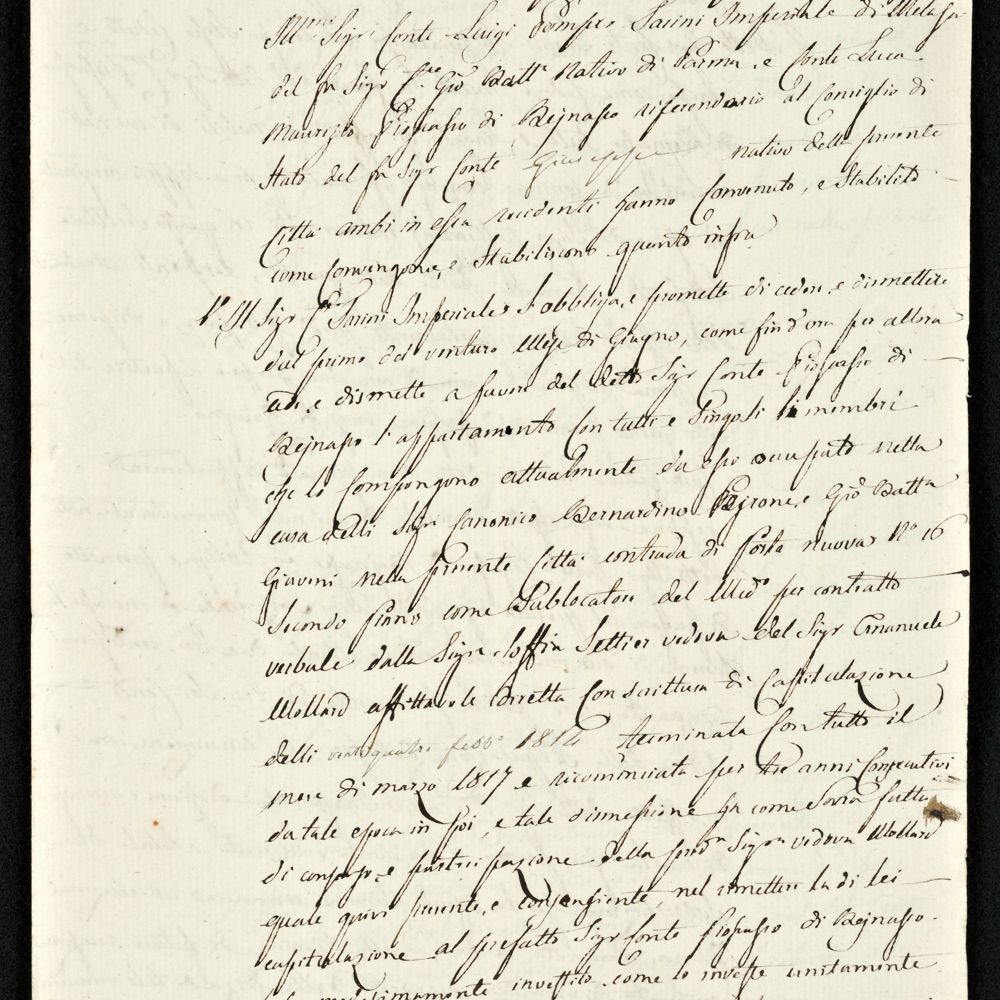 Ill.mi Sig.ri Conte Luigi Pompeo Sarini Imperiale di
del fu Sig.r C.te Gio Batt.a nativo di Parma, e Conte Luca
Maurizio di Bejnasco riferendario al Consiglio di
Stato del fu Sig.r Conte Giuseppe nativo della presente
Città ambi in essa residenti hanno Convenuto, e Stabilito
come Convengono, e Stabiliscono quanto infra
1.° Il Sig.r C.te Sarini Imperiale s'obbliga, e promette di cedere, e dismettere
dal primo del venturo Mese di Giugno, come fin d'ora per allora
cede, e dismette a favore del detto Sig.r Conte di
Bejnasco l'appartamento con tutti e singoli li membri
che lo Compongono attualmente da esso occupato nella
casa delli Sig.ri Canonico Bernardino Peirone, e Gio Batta
Giaveni nella presente Città contrada di Porta nuova N° 16
Secondo piano come Sublocatore del Med.o per contratto
verbale dalla Sig.ra Soffia Settier vedova del Sig.r Emanuele
Mollard affittavole diretta con scrittura di Capitulazione
delli venti quattro febb.o 1814 terminata con tutto il
mese di marzo 1817 e ricominciata per tre anni Consecutivi
da tale epoca in poi, e tale dismessione fa come sovra fatta
di consenso, e partecipazione della pred.a Sig.ra vedova Mollard
quale quivi presente, e consenziente, nel rimettere la di lei
capitulazione al prefatto Sig.r Conte di Bejnasso
investito, come lo investe unitamente